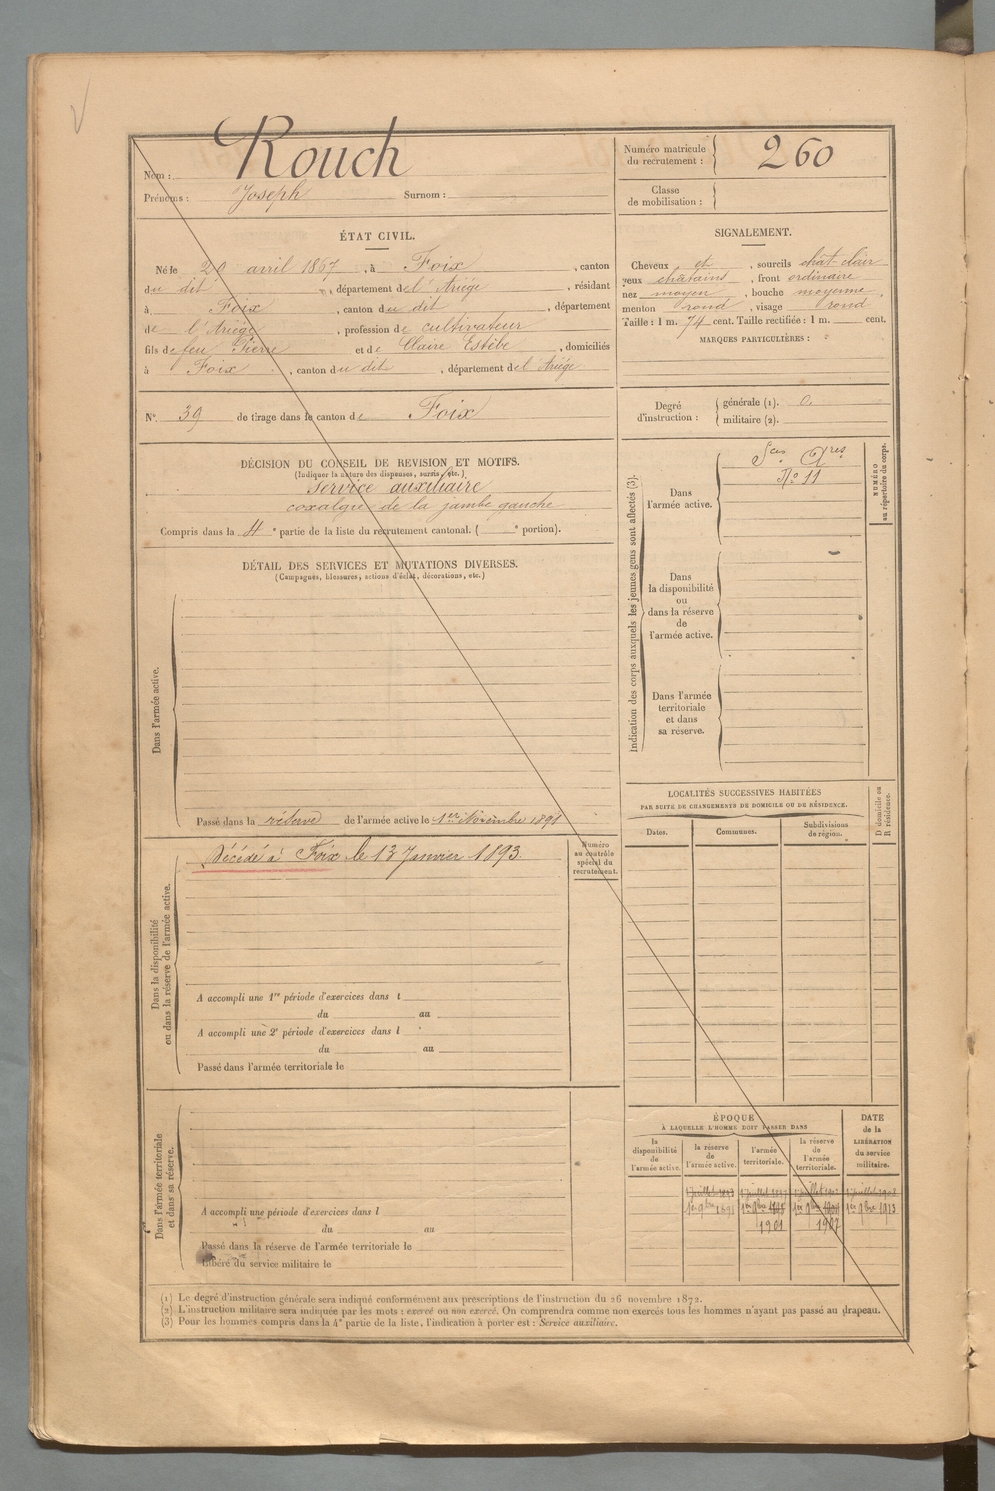 Nom : Rouch
Prénoms : Joseph Surnom :
ÉTAT CIVIL.
Né le 20 avril 1867, à Foix, canton
du dit, département de l'Ariège, résidant
à Foix, canton du dit, département
de l'Ariège, profession de cultivateur
fils de feu Pierre et de Claire Estèbe, domiciliés
à Foix, canton du dit, département de l'Ariège
N° 39 de tirage dans le canton de Foix
DÉCISION DU CONSEIL DE REVISION ET MOTIFS.
(Indiquer la nature des dispenses, sursis, etc.)
Service auxiliaire
coxalgie de la jambe gauche
Compris dans la 4e partie de la liste du recrutement cantonal. ( e portion).
DÉTAIL DES SERVICES ET MUTATIONS DIVERSES.
(Campagnes, blessures, actions d'éclat, décorations, etc.)
Dans l'armée active.
Passé dans la réserve de l'armée active le 1er Novembre 1891
Dans la disponibilité
ou dans la réserve de l'armée active.
Décédé à Foix le 13 Janvier 1893.
Numéro
au contrôle
spécial du
recrutement.
A accompli une 1re période d'exercices dans l
du au
A accompli une 2e période d'exercices dans l
du au
Passé dans l'armée territoriale le
Dans l'armée territoriale
et dans sa réserve.
A accompli une période d'exercices dans l
du au
Passé dans la réserve de l'armée territoriale le
Libéré du service militaire le
Numéro matricule
du recrutement : 260
Classe
de mobilisation :
SIGNALEMENT.
Cheveux et, sourcils chat-clair
yeux chatains, front ordinaire
nez moyen, bouche moyenne,
menton rond, visage rond
Taille : 1 m. 74 cent. Taille rectifiée : 1 m. cent.
MARQUES PARTICULIÈRES :
Degré
d'instruction : générale (1). 0.
militaire (2).
Indication des corps auxquels les jeunes gens sont affectés (3).
Dans
l'armée active.
Sces Ares
N° 11
NUMÉRO
au répertoire du corps.
Dans
la disponibilité
ou
dans la réserve
de
l'armée active.
Dans l'armée
territoriale
et dans
sa réserve.
LOCALITÉS SUCCESSIVES HABITÉES
PAR SUITE DE CHANGEMENTS DE DOMICILE OU DE RÉSIDENCE.
Dates. Communes. Subdivisions
de région.
D domicile ou
R résidence.
ÉPOQUE
À LAQUELLE L'HOMME DOIT PASSER DANS
la
disponibilité
de
l'armée active.
la réserve
de
l'armée active.
l'armée
territoriale.
la réserve
de
l'armée
territoriale.
DATE
de la
LIBÉRATION
du service
militaire.
1er 9bre 1891 1er 9bre 1er 9bre 1er 9bre 1913
1901 1907
(1) Le degré d'instruction générale sera indiqué conformément aux prescriptions de l'instruction du 26 novembre 1872.
(2) L'instruction militaire sera indiquée par les mots : exercé ou non exercé. On comprendra comme non exercés tous les hommes n'ayant pas passé au drapeau.
(3) Pour les hommes compris dans la 4e partie de la liste, l'indication à porter est : Service auxiliaire.